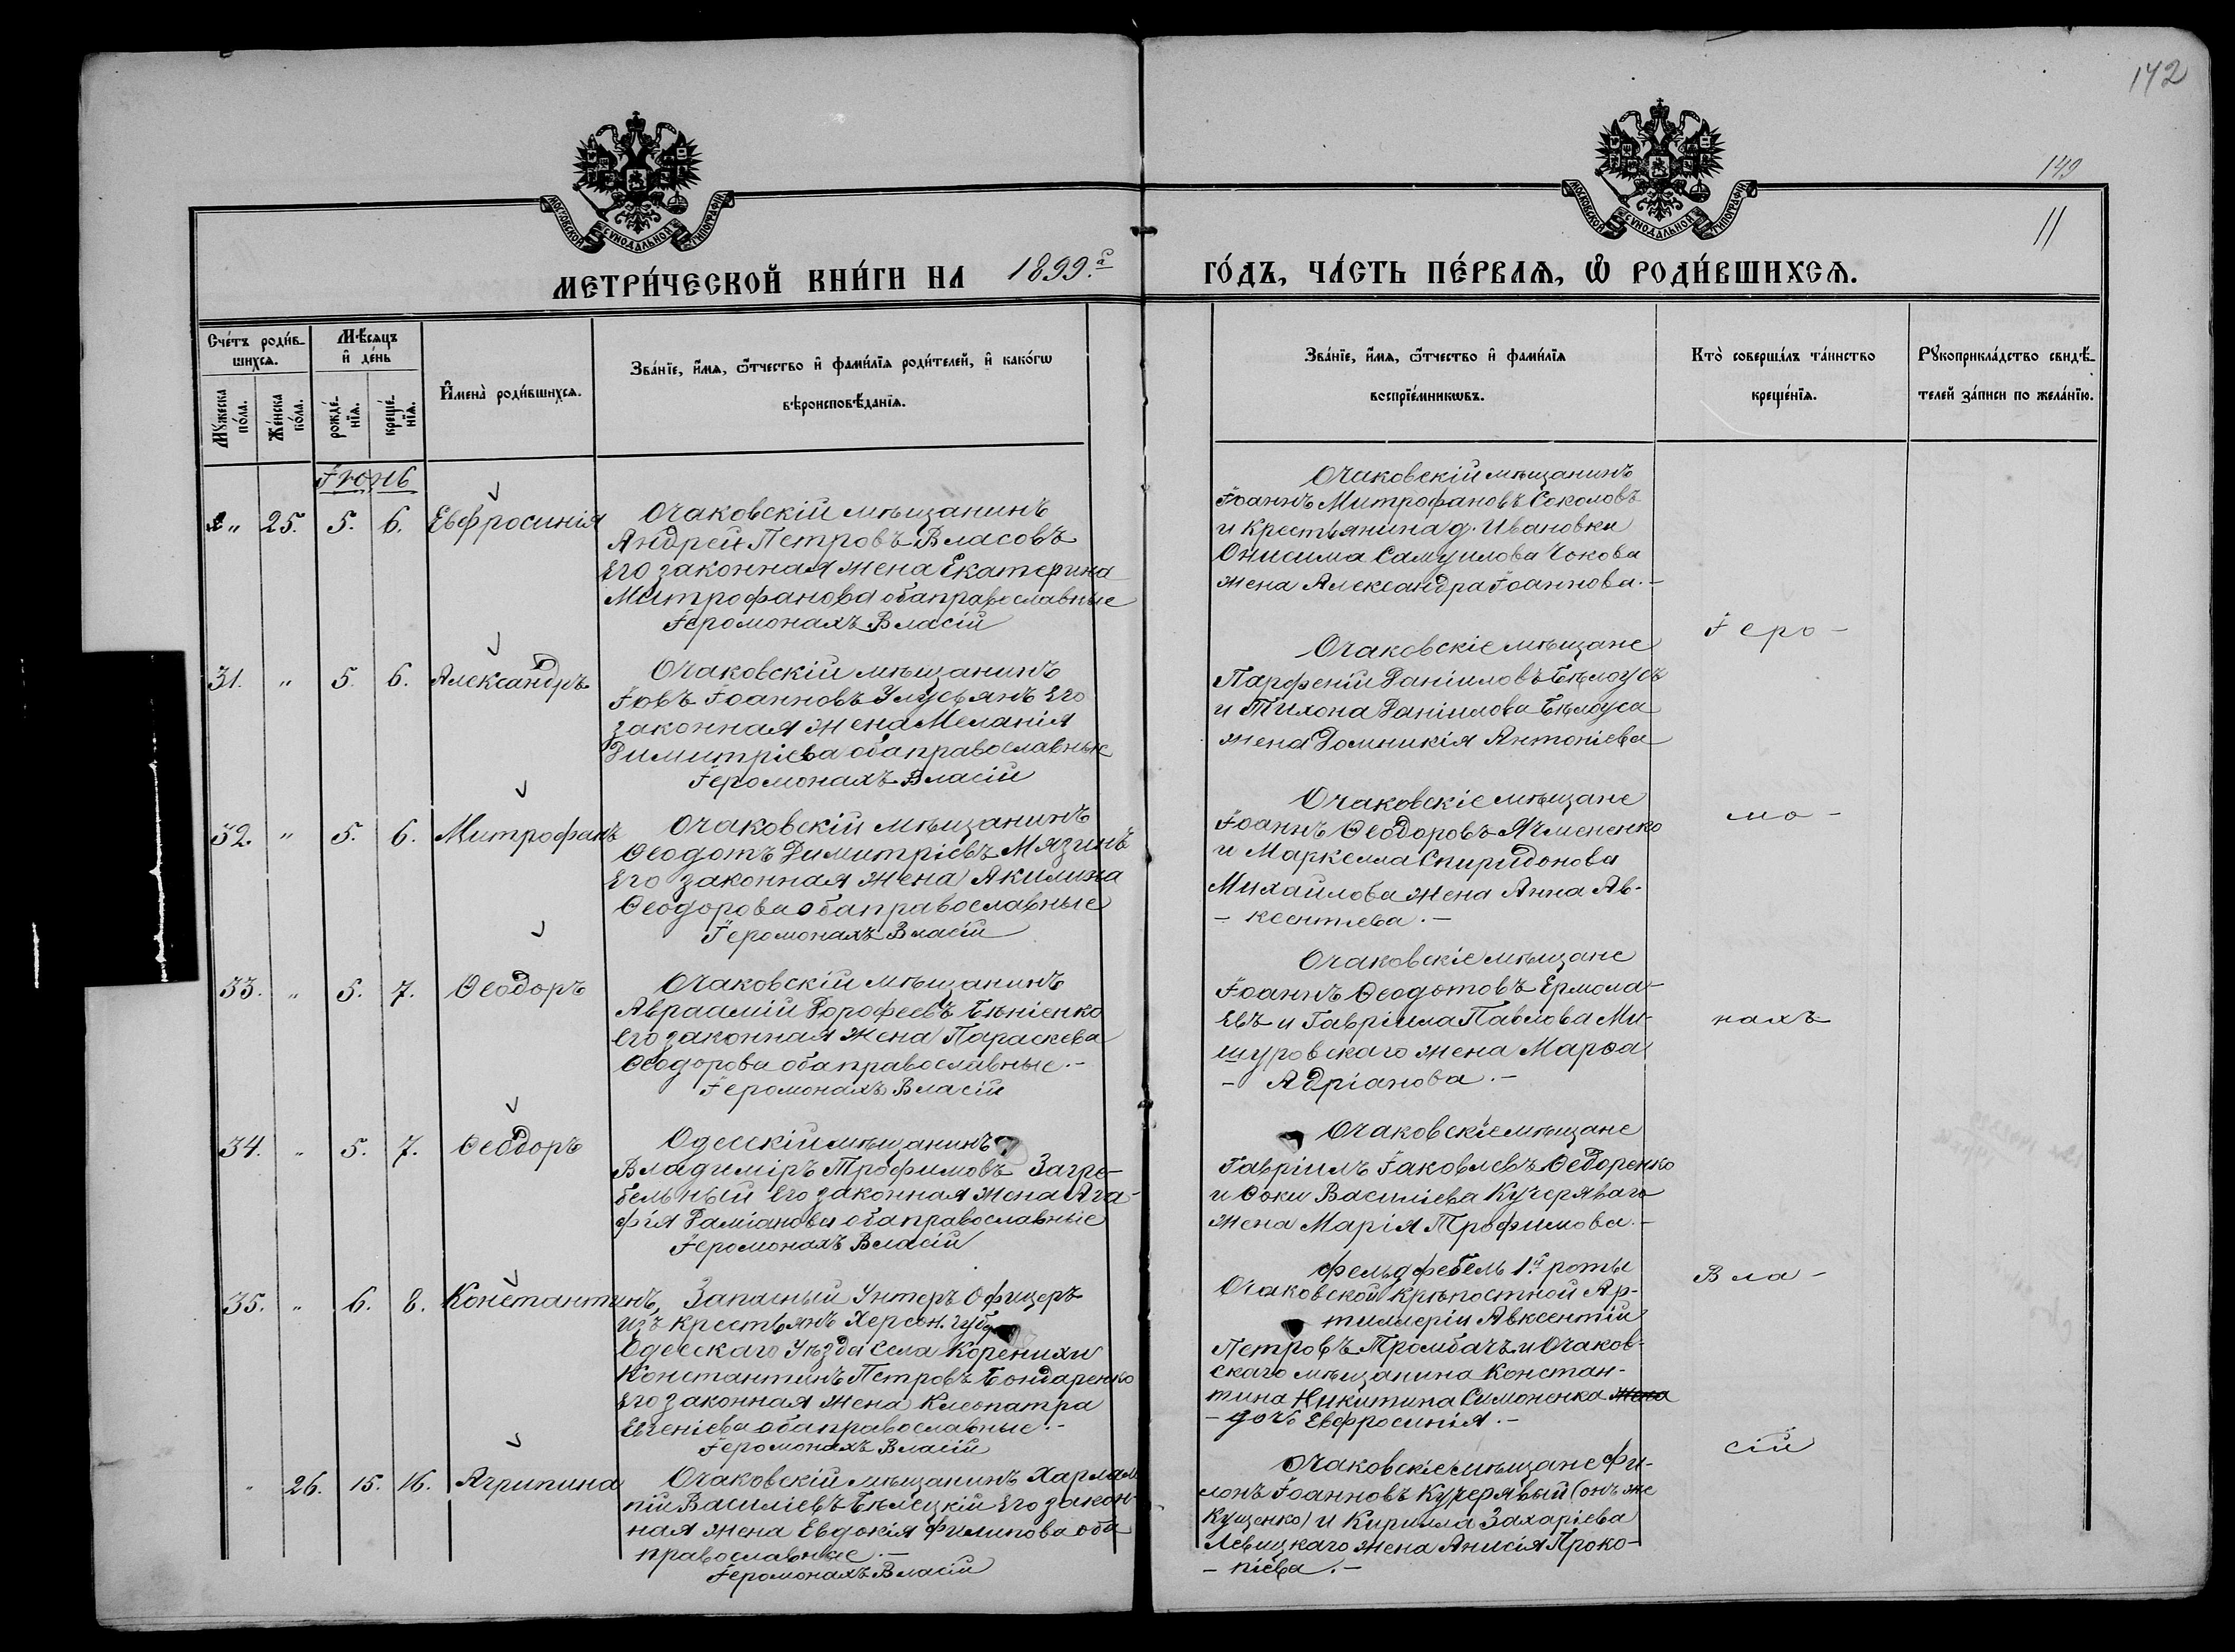 142
149
11
МОСКОВСКОЙ СѴНОДАЛЬНОЙ ТИПОГРАФІИ
МОСКОВСКОЙ СѴНОДАЛЬНОЙ ТИПОГРАФІИ
МЕТРИ́ЧЕСКОЙ КНИ́ГИ НА 1899.й ГО́ДЪ, ЧА́СТЬ ПЕ́РВАѦ, Ѡ РОДИ́ВШИХСѦ.
Сче́тъ роди́в-
шихсѧ.
Мѣ́сѧцъ
и҆ де́нь
Мꙋ́жеска
по́ла.
Же́нска
по́ла.
рожде́-
нїѧ.
креще́-
нїѧ.
И҆мена̀ роди́вшихсѧ.
Зва́нїе, и҆́мѧ, ѻ҆́тчество и҆ фами́лїѧ роди́телей, и҆ како́гѡ
вѣроисповѣ́данїѧ.
Зва́нїе, и҆́мѧ, ѻ҆́тчество и҆ фами́лїѧ
воспрїе́мникѡвъ.
Кто̀ соверша́лъ та́инство
креще́нїѧ.
Рꙋкоприкла́дство свидѣ́-
телей за́писи по жела́нїю.
Іюнь
" 25. 5. 6. Евфросинія
Очаковскій мѣщанинъ
Андрей Петровъ Власовъ
Его законная жена Екатерина
Митрофанова оба православные
Іеромонахъ Власій
Очаковскій мѣщанинъ
Іоаннъ Митрофановъ Соколовъ
и крестьянина д. Ивановки
Онисима Самуилова Чокова
жена Александра Іоаннова.-
31. " 5. 6. Александръ
Очаковскій мѣщанинъ
Іовъ Іоанновъ Улусьянъ Его
законная жена Меланія
Димитріева оба православные
Іеромонахъ Власій
Очаковскіе мѣщане
Парфеній Даніиловъ Бѣлоусъ
и Тихона Даніилова Бѣлоуса
жена Домникія Антоніева
32. " 5. 6. Митрофанъ
Очаковскій мѣщанинъ
Ѳеодотъ Димитріевъ Мязинъ
Его законная жена Акилина
Ѳеодорова оба православные
Іеромонахъ Власій
Очаковскіе мѣщане
Іоаннъ Ѳеодоровъ Ячмененко
и Маркелла Спиридонова
Михайлова жена Анна Ав-
- ксентіева.-
33. " 5. 7. Ѳеодоръ
Очаковскій мѣщанинъ
Авраамій Дорофеевъ Бѣніенко
его законная жена Параскева
Ѳеодорова оба православные.-
Іеромонахъ Власій
Очаковскіе мѣщане
Іоаннъ Ѳеодотовъ Ермола-
евъ и Гавріила Павлова Ми-
шуровскаго жена Марѳа
- Адріанова.-
34. " 5. 7. Ѳеодоръ
Одесскій мѣщанинъ
Владиміръ Трофимовъ Загре-
бельный его законная жена Ага-
фія Даміанова оба православные
Іеромонахъ Власій
Очаковскіе мѣщане
Гавріилъ Іаковлевъ Ѳедоренко
и Ѳоки Василіева Кучеряваго
жена Марія Трофимова.-
35. " 6. 8. Константинъ,
Запасный Унтеръ Офицеръ
изъ крестьянъ Херсон. губ.
Одесскаго Уѣзда Села Коренихи
Константинъ Петровъ Бондаренко
Его законная жена Клеопатра
Евгеніева оба православные.-
Іеромонахъ Власій
Фельдфебель 1.й роты
Очаковской крѣпостной Ар-
тиллеріи Авксентій
Петровъ Тромбачъ и Очаков-
скаго мѣщанина Констан-
тина Никитина Симоненка жена
- дочь Евфросинія.-
" 26. 15. 16. Агрипина
Очаковскій мѣщанинъ Харлам-
пій Василіевъ Бѣлецкій Его закон-
ная жена Евдокія Филипова оба
православные.-
Іеромонахъ Власій
Очаковскіе мѣщане Фи-
лонъ Іоанновъ Кучерявый (онъ же
Кущенко) и Кирилла Захаріева
Левицкаго жена Анисія Проко-
- піева.-
Іеро-
мо-
нахъ
Вла-
сій